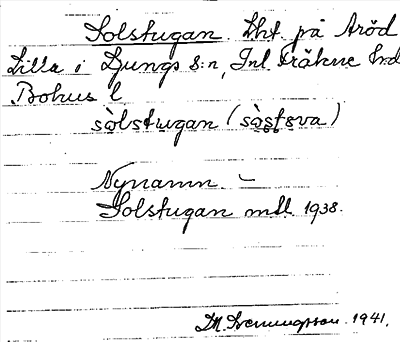 Solstugan. Lht på Aröd
Lilla i Ljungs s:n, Inl Fräkne hd
Bohus l
sòlstugan (sòstsva)
Nynamn –
Solstugan mtl 1938.
1941.